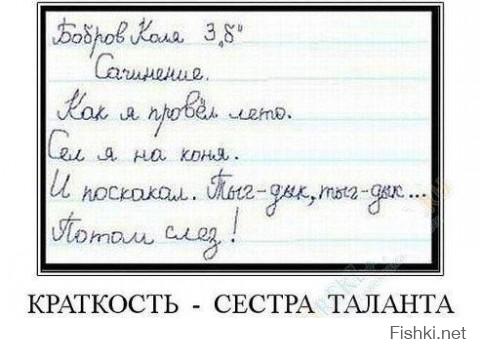 Бобров Коля 3„б"
Сочинение.
Как я провёл лето.
Сел я на коня.
И поскакал. Тыг-дык, тыг-дык...
Потом слез!
КРАТКОСТЬ - СЕСТРА ТАЛАНТА
Fishki.net